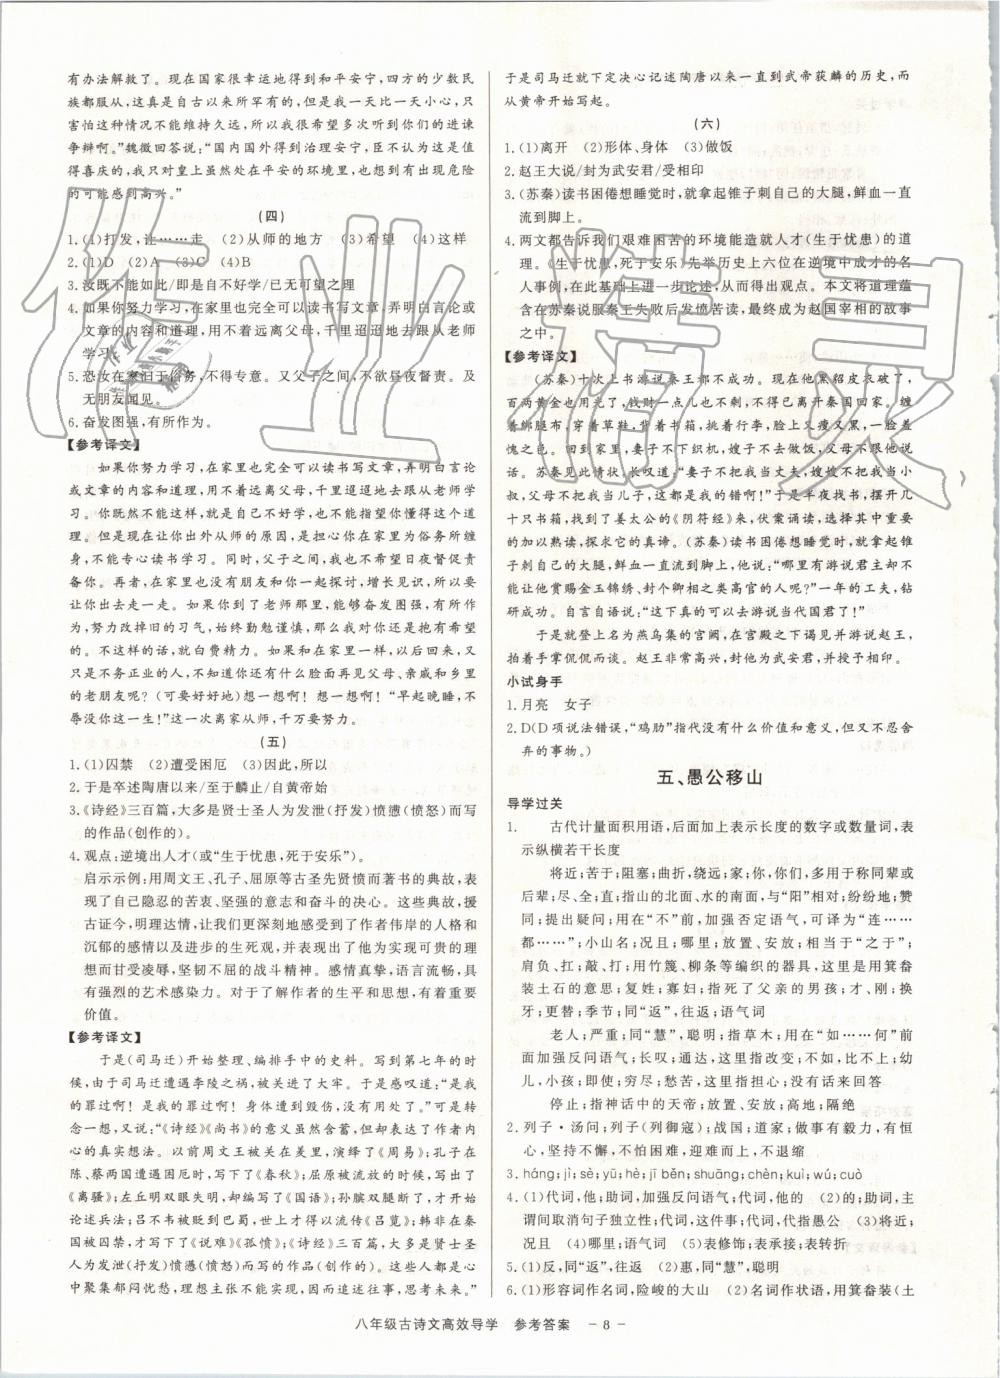 有办法解救了。现在国家很幸运地得到和平安宁,四方的少数民
族都服从,这真是自古以来所罕有的,但我一天比一天小心,只
害怕这种情况不能维持久远,所以我很希望多次听到你们的进谏
争辩啊。”魏徵回答说:“国内国外得到治理安宁,臣不认为这是值
得喜庆的,我只对皇上虽然处在平安的环境里,也想到有出现危险
的可能感到高兴。”
(四)
1.(1)打发,让……走 (2)从师的地方 (3)希望 (4)这样
2.(1)D (2)A (3)C (4)B
3.汝既不能如此/即是自不好学/已无可望之理
4.如果你努力学习,在家里也完全可以读书写文章,弄明白言论或
文章的内容和道理,用不着远离父母,千里迢迢地去跟从老师
学习。
5.恐汝在家汩于俗务,不得专意。又父子之间,不欲昼夜督责。及
无朋友闻见。
6.奋发图强,有所作为。
【参考译文】
如果你努力学习,在家里也完全可以读书写文章,弄明白言论
或文章的内容和道理,用不着远离父母,千里迢迢地去跟从老师学
习。你既然不能这样,就是自己不好学,也不能指望你懂得这个道
理。但是现在让你出外从师的原因,是担心你在家里为俗务所缠
身,不能专心读书学习。同时,父子之间,我也不希望日夜督促责
备你。再者,在家里也没有朋友和你一起探讨,增长见识,所以要
让你出去走一走。如果你到了老师那里,能够奋发图强,有所作
为,努力改掉旧的习气,始终勤勉谨慎,那么我对你还是抱有希望
的。不这样的话,就白费精力。如果和在家里一样,以后回来,只
是不务正业的人,不知道你还有什么脸面再见父母、亲戚和乡里
的老朋友呢?(可要好好地)想一想啊!想一想啊!“早起晚睡,不
辱没你这一生!”这一次离家从师,千万要努力。
(五)
1.(1)囚禁 (2)遭受困厄 (3)因此,所以
2.于是卒述陶唐以来/至于麟止/自黄帝始
3.《诗经》三百篇,大多是贤士圣人为发泄(抒发)愤懑(愤怒)而写
的作品(创作的)。
4.观点:逆境出人才(或“生于忧患,死于安乐”)。
启示示例:用周文王、孔子、屈原等古圣先贤愤而著书的典故,表
现了自己隐忍的苦衷、坚强的意志和奋斗的决心。这些典故,援
古证今,明理达情,让我们更深刻地感受到了作者伟岸的人格和
沉郁的感情以及进步的生死观,并表示出了他为实现可贵的理
想而甘受凌辱,坚韧不屈的战斗精神。感情真挚,语言流畅,具
有强烈的艺术感染力。对于了解作者的生平和思想,有着重要
价值。
【参考译文】
于是(司马迁)开始整理、编排手中的史料。写到第七年的时
候,由于司马迁遭遇李陵之祸,被关进了大牢。于是感叹道:“是我
的罪过啊!是我的罪过啊!身体遭到毁伤,没有用处了。”可是转
念一想,又说:“《诗经》《尚书》的意义虽然含蓄,但却表达了作者内
心的真实想法。以前周文王被关在羑里,演绎了《周易》;孔子在
陈、蔡两国遭遇了困境,写下了《春秋》;屈原被流放的时候,写出了
《离骚》;左丘明双眼失明,却编写了《国语》;孙膑双腿断了,才开始
论述兵法;吕不韦被贬到巴蜀,世上才得以流传《吕览》;韩非在秦
国被囚禁,才写下了《说难》《孤愤》;《诗经》三百篇,大多是贤士圣人
为发泄(抒发)愤懑(愤怒)而写的作品(创作的)。这些人都是心
中聚集郁闷忧愁,理想主张不能实现,因而追述往事,思考未来。”
于是司马迁就下定决心记述陶唐以来一直到武帝获麟的历史,而
从黄帝开始写起。
(六)
1.(1)离开 (2)形体、身体 (3)做饭
2.赵王大说/封为武安君/受相印
3.(苏秦)读书困倦想睡觉时,就拿起锥子刺自己的大腿,鲜血一直
流到脚上。
4.两文都告诉我们艰难困苦的环境能造就人才(生于忧患)的道
理。《生于忧患,死于安乐》先举历史上六位在逆境中成才的名
人事例,在此基础上进一步论述,从而得出观点。本文将道理蕴
含在苏秦说服秦王失败后发愤苦读,最终成为赵国宰相的故事
之中。
【参考译文】
(苏秦)十次上书游说秦王都不成功。现在他黑貂皮衣破了,
百两黄金也用光了,钱财一点儿也不剩,不得已离开秦国回家。缠
着绑腿布,穿着草鞋,背着书箱,挑着行李,脸上又瘦又黑,一脸羞
愧之色。回到家里,妻子不下织机,嫂子不去做饭,父母不跟他说
话。苏秦见此情状,长叹道:“妻子不把我当丈夫,嫂嫂不把我当小
叔,父母不把我当儿子,这都是我的错啊!”于是半夜找书,摆开几
十只书箱,找到了姜太公的《阴符经》来,伏案诵读,选择其中重要
的加以熟读,探求它的真谛。(苏秦)读书困倦想睡觉时,就拿起锥
子刺自己的大腿,鲜血一直流到脚上,他说:“哪里有游说君主却不
能让他赏赐金玉锦绣、封个卿相之类高官的人呢?”一年的工夫,钻
研成功。自言自语说:“这下真的可以去游说当代国君了!”
于是就登上名为燕乌集的宫阙,在宫殿之下谒见并游说赵王,
拍着手掌侃侃而谈。赵王非常高兴,封他为武安君,并授予相印。
小试身手
1.月亮 女子
2.D(D项说法错误,“鸡肋”指代没有什么价值和意义,但又不忍舍
弃的事物。)
五、愚公移山
导学过关
1. 古代计量面积用语,后面加上表示长度的数字或数量词,表
示纵横若干长度
将近;苦于;阻塞;曲折,绕远;家;你,你们,多用于称同辈或
后辈;尽,全;直;指山的北面、水的南面,与“阳”相对;纷纷地;赞
同;提出疑问;用在“不”前,加强否定语气,可译为“连……
都……”;小山名;况且;哪里;放置、安放;相当于“之于”;
肩负、扛;敲、打;用竹篾、柳条等编织的器具,这里是用箕畚
装土石的意思;复姓;寡妇;指死了父亲的男孩;才、刚;换
牙;更替;季节;同“返”,往返;语气词
老人;严重;同“慧”,聪明;指草木;用在“如……何”前
面加强反问语气;长叹;通达,这里指改变;不如、比不上;幼
儿,小孩;即使;穷尽;愁苦,这里可以活译来回答
停止;指神话中的天帝;放置、安放;高地;隔绝
2.列子·汤问;列子(列御寇);战国;道家;做事有毅力,有恒
心,坚持不懈,不怕困难,迎难而上,不退缩
3.háng;jì;sè;yū;hè;jī běn;shuāng;chèn;kuì;wú;cuò
4.(1)代词,他;助词,加强反问语气;代词,他的 (2)的;助词,主
谓间取消句子独立性;代词,这件事;代词,代指愚公 (3)将近;
况且 (4)哪里;语气词 (5)表修饰;表承接;表转折
5.(1)反,同“返”,往返 (2)惠,同“慧”,聪明
6.(1)形容词作名词,险峻的大山 (2)名词作状语,用箕畚装(土
八年级古诗文高效导学 参考答案 -8-
作业精灵